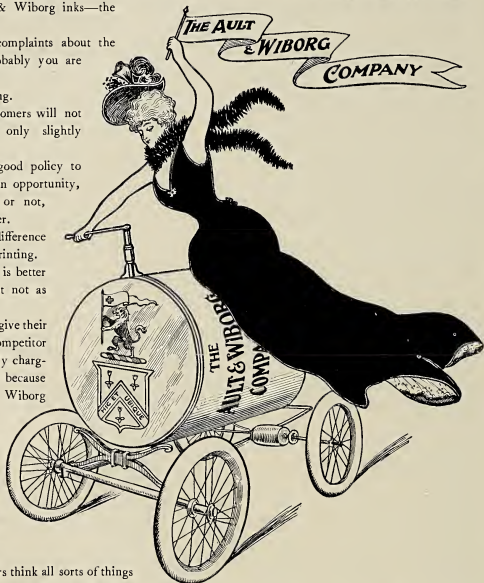 & Wiborg inks—the
complaints about the
obably you are
ng.
omers will not
only slightly
good policy to
n opportunity,
or not,
er.
difference
rinting.
is better
t not as
give their
ompetitor
y charg-
because
Wiborg
rs think all sorts of things
THE AULT
& WIBORG
COMPANY
THE
AULT & WIBORG
COMPA
HIC ET UBIQUE